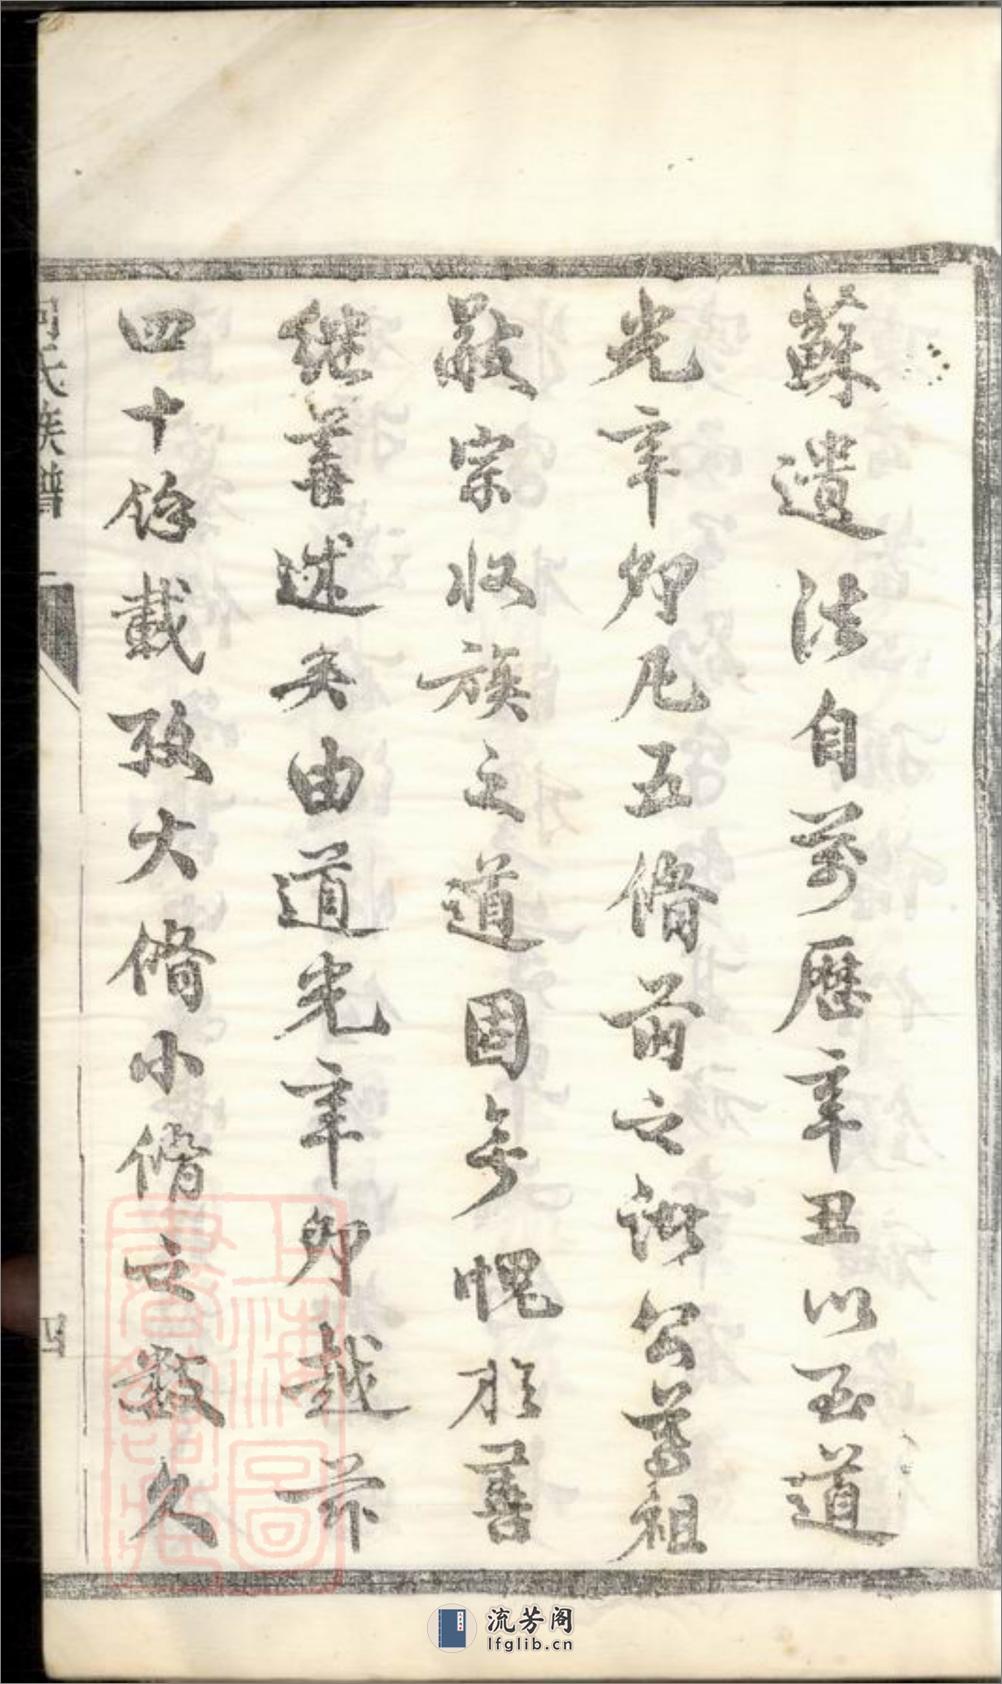 蘇遺法自萬歷辛丑以至道
光辛卯凡五脩前之諸公尊祖
敬宗收族之道固無愧於善
继善述矣由道光辛卯越茲
四十餘載攷大脩小脩之数久
氏族譜
四
上海圖書館藏
流芳阁
lfglib.cn